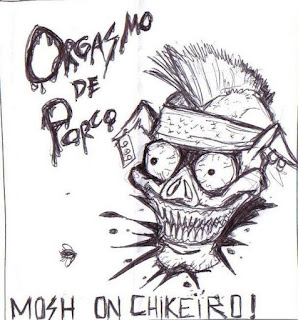 ORGASMO
DE
PORCO
MOSH ON CHIKEIRO!